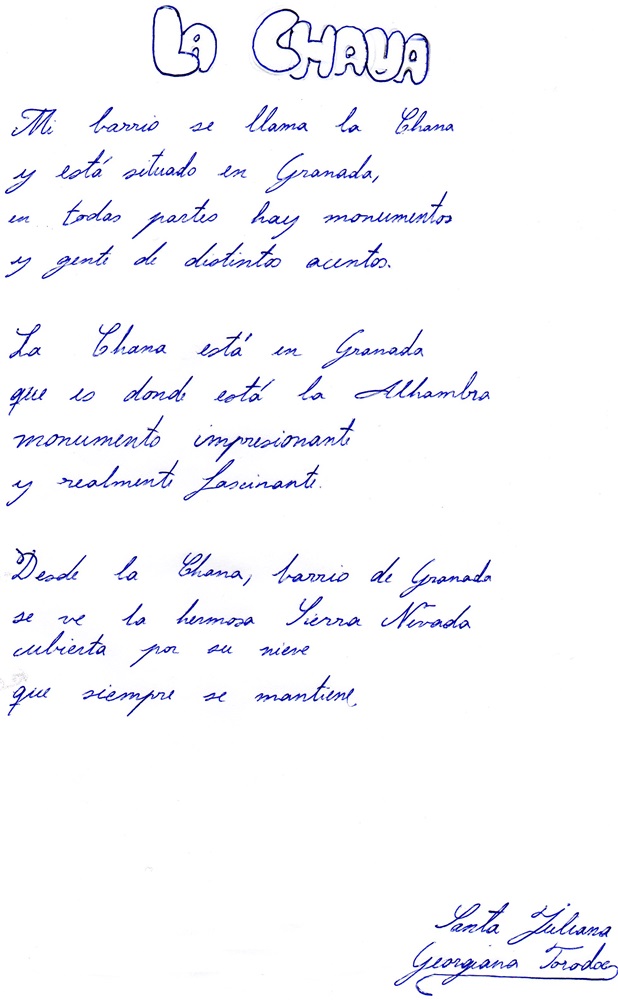 LA CHANA
Mi barrio se llama la Chana
y está situado en Granada,
en todas partes hay monumentos
y gente de distintos acentos.
La Chana está en Granada
que es donde está la Alhambra
monumento impresionante
y realmente fascinante.
Desde la Chana, barrio de Granada
se ve la hermosa Sierra Nevada
cubierta por su nieve
que siempre se mantiene.
Santa Juliana
Georgiana